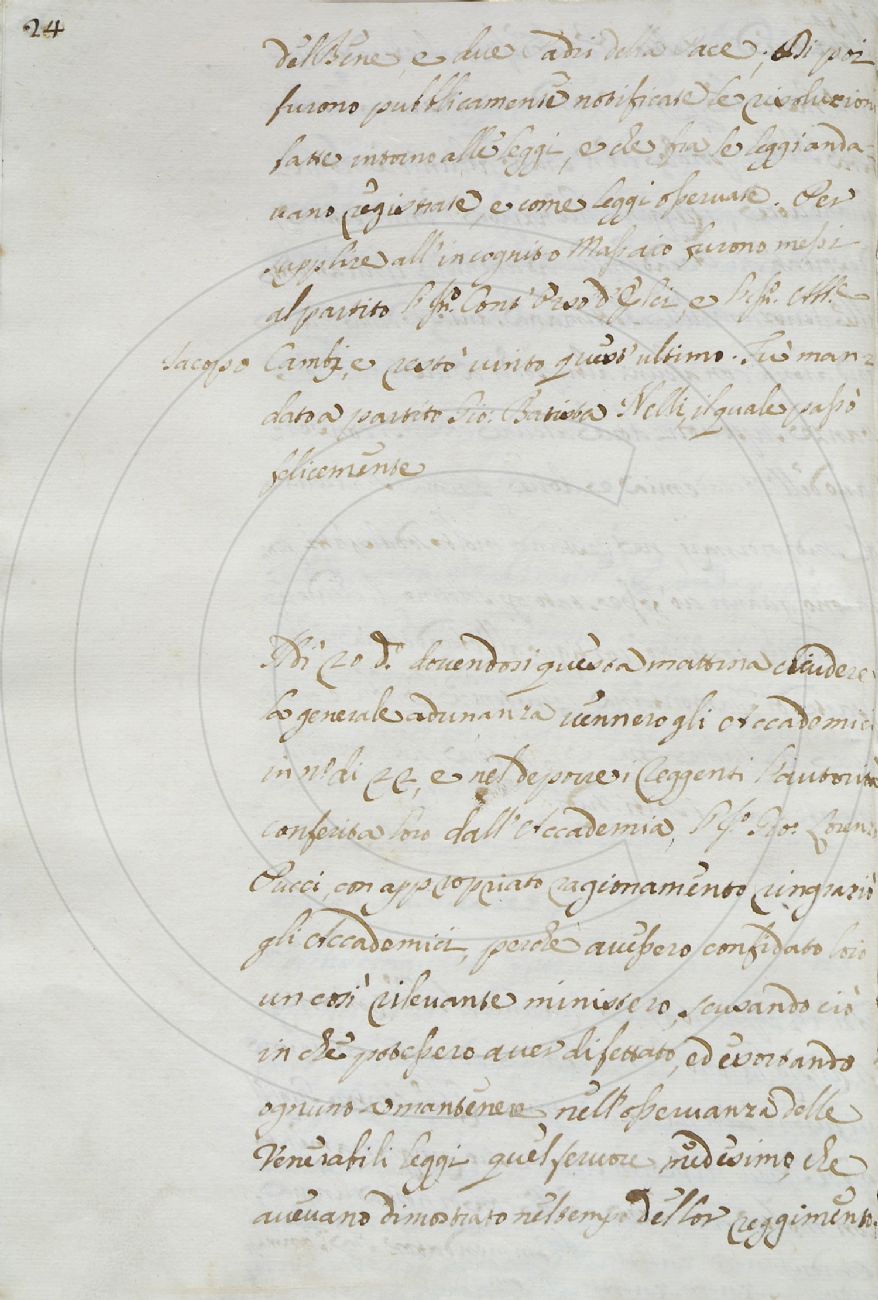 24
dell Bene, e due adii della ace; Di poi
furono pubblicamente notificate le risoluzioni
fatte intorno alle leggi, e che fra le leggi anda-
uano registrate, e come leggi osseruate. Per
supplire all'incognito Massaio furono messi
al partito l' Cont' Orso d'Elci, e l'
Jacopo Cambj, e restò uinto quest' ultimo. Fù man-
dato a partito Gio: Batista Nelli, il quale passò
felicemente
Adì 20 d.o douendosi questa mattina chiudere
la generale adunanza uennero gli Accademici
in n.o di 22, e nel deporre i Reggenti l'autorità
conferita loro dall' Accademia, l' Lorenzo
Pucci, con appropriato ragionamento ringraziò
gli Accademici, perchè auessero confidato loro
un così rileuante ministero, scusando ciò
in che potessero auer difettato, ed esortando
ognuno a mantenere nell'osseruanza delle
Venerabili leggi quel feruore medesimo, che
aueuano dimostrato nel tempo del lor reggimento.